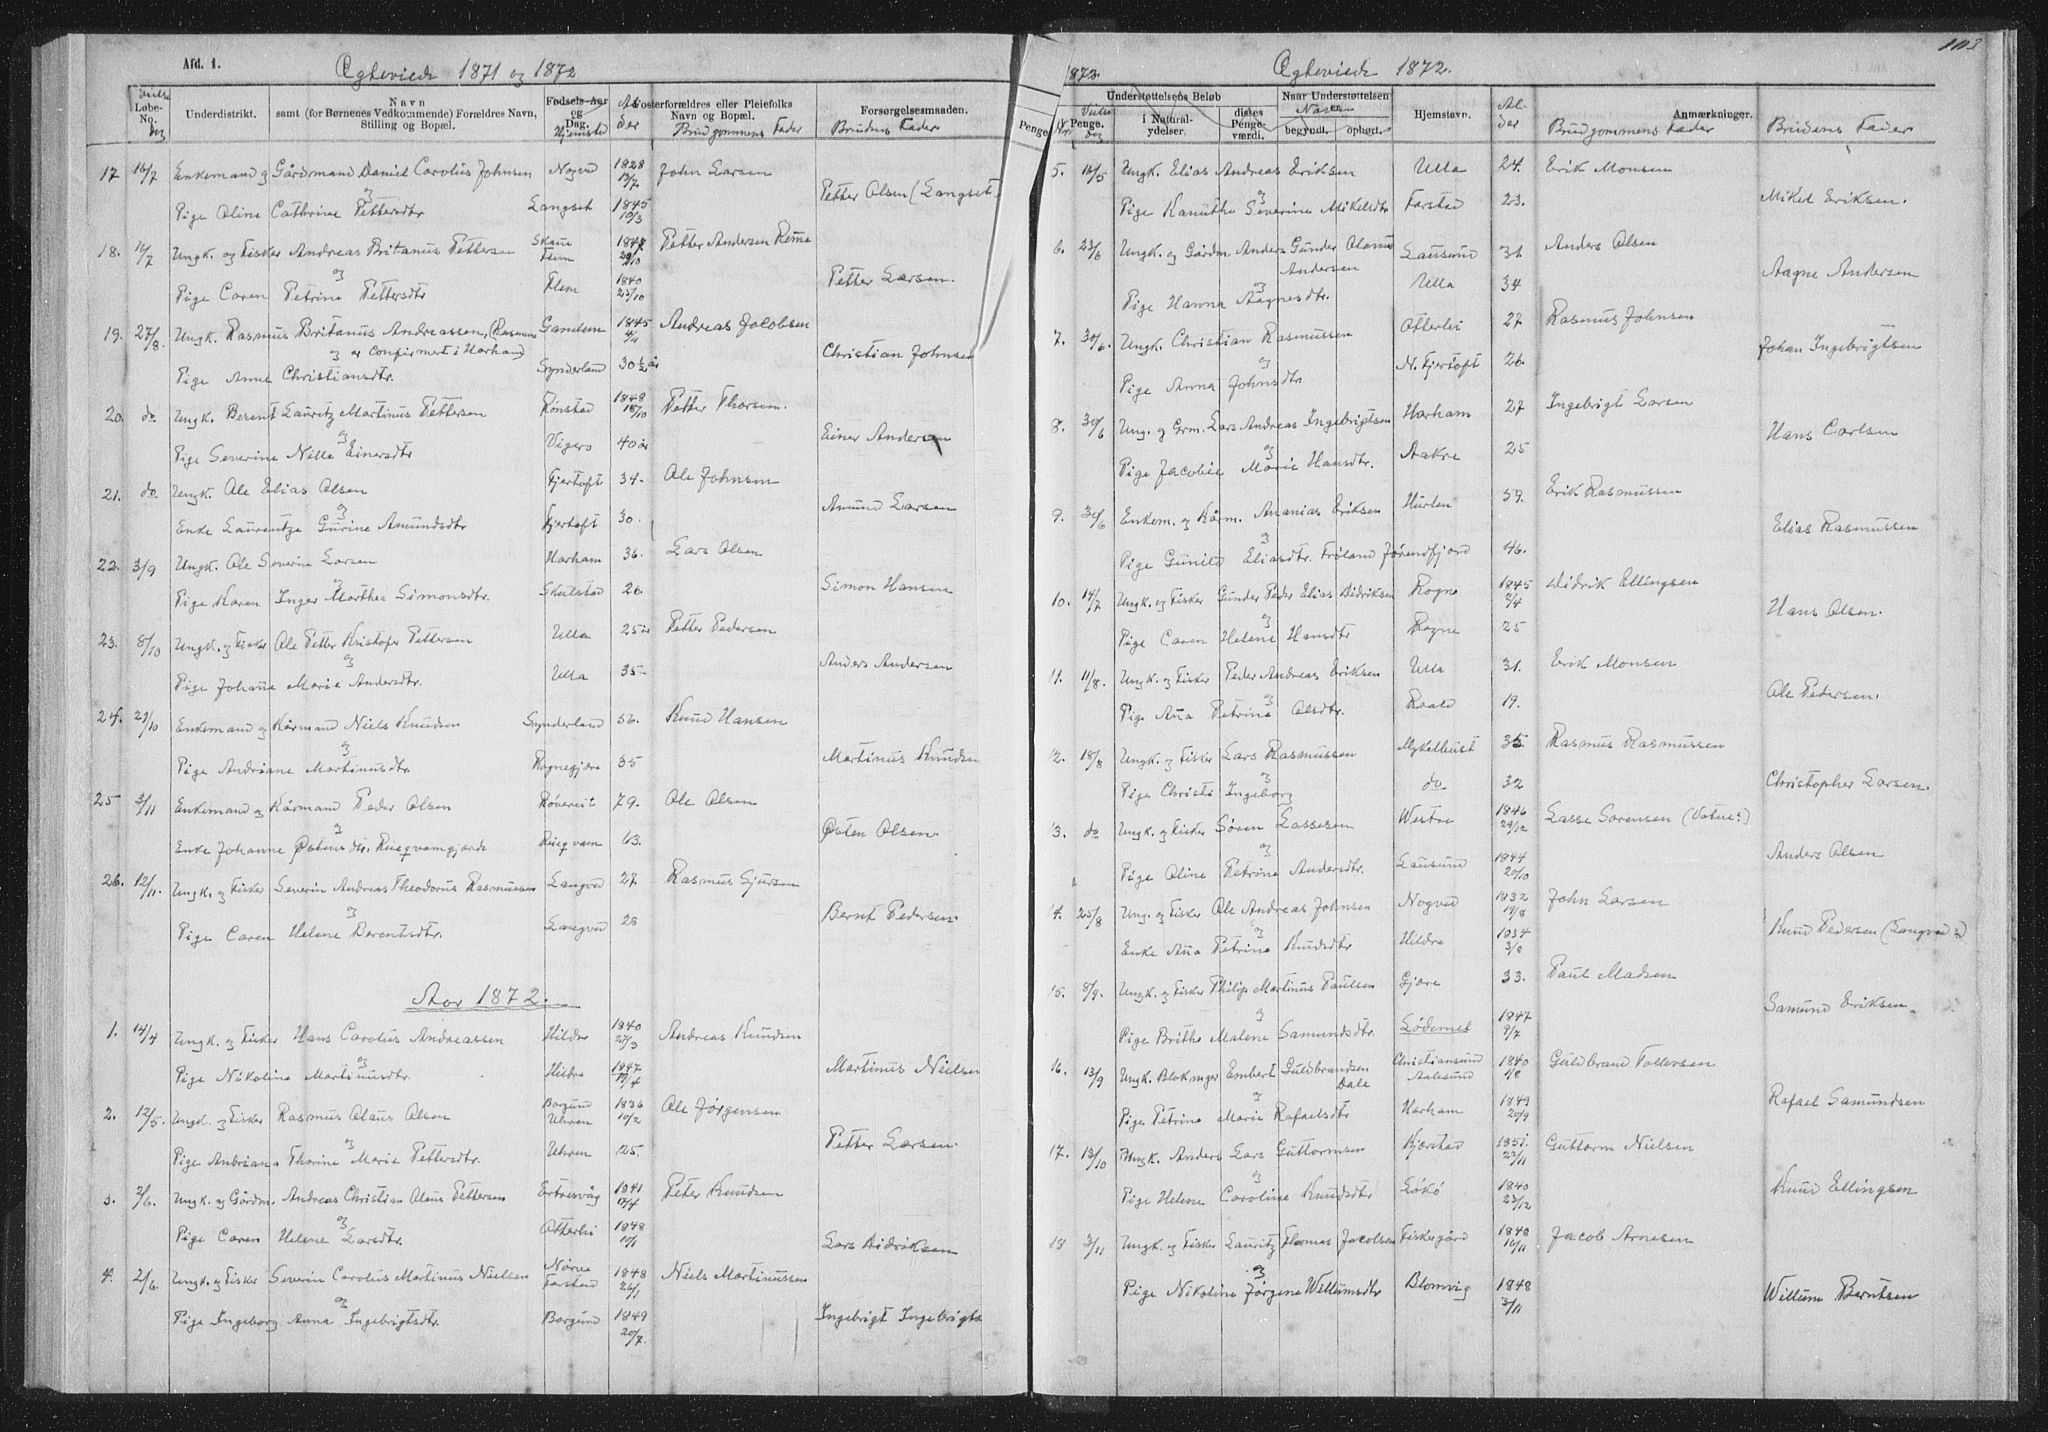 Afd. 1.
Ægteviede 1871 og 1872
Vielse
Løbe-No.
Underdistrikt.
Navn
samt (for Børnenes Vedkommende) Forældres Navn,
Stilling og Bopæl.
Fødsels-Aar
og
Dag.
Hjemsted
Al
der
Fosterforældres eller Pleiefolks
Navn og Bopæl.
Brudgommens Fader
Forsørgelsesmaaden.
Brudens Fader
17 16/7 Enkemand og Gårdmand Daniel Carolus Johnsen Nogved 1828 13/7 John Larsen
og
Pige Oline Cathrine Pettersdtr Langset 1845 10/3 Petter Olsen (Langset)
18. 16/7 Ungk. og Fisker Andreas Britanus Pettersen Skaue Flem 1848 29/10 Petter Andersen Reme
og
Pige Caren Petrine Pettersdtr Flem 1840 25/10 Petter Larsen.
19. 27/8. Ungk. Rasmus Britanus Andreassen, (Rasmus Gamlem 1845 4/4 Andreas Jacobsen
og er confirmert i Harham)
Pige Anne Christiansdtr. Synderland 30 1/2 år Christian Johnsen
20. do Ungk. Berent Lauritz Martinus Pettersen Rønstad 1848 18/10 Petter Thorsen.
og
Pige Severine Nille Einersdtr Vigero 40 år Einer Andersen
21. do Ungk. Ole Elias Olsen Fjertoft 34- Ole Johnsen
og
Enke Laurentze Gurine Amundsdtr Fjertoft 30. Amund Larsen
22. 3/9 Ungk. Ole Severin Larsen Harham 36. Lars Olsen
og
Pige Karen Inger Marthea Simonsdtr. Skulstad 26. Simon Hansen
23. 8/10 Ungk. og Fisker Ole Petter Kristofer Pettersen Ulla 25 år Petter Pedersen
og
Pige Johane Marie Andersdtr. Ulla 35- Anders Andersen
24. 29/10 Enkemand og Kårmand Niels Knudsen Synderland 56. Knud Hansen
og
Pige Andriane Martinusdtr. Rognegjære 35 Martinus Knudsen
25 3/11 Enkemand og Kårmand Peder Olsen Røvereit 79. Ole Olsen
og
Enke Johanne Østensdtr. 63. Østen Olsen.
26. 12/11. Ungk. og Fisker Severin Andreas Theodorus Rasmussen Langved 27 Rasmus Gjursen
og
Pige Caren Helene Berentsdtr. Langved 28 Bernt Pedersen.
Aar 1872.
1. 14/4 Ungk. og Fisker Hans Carolus Andreassen Hildre 1840 27/3 Andreas Knudsen
og
Pige Nikoline Martinusdtr. Hildre 1847 19/4 Martinus Nielsen
2. 12/5. Ungk. og Fisker Rasmus Olaus Olsen Borgund Uhren 1836 10/2 Ole Jørgensen
og
Pige Andriana Thorine Marie Pettersdtr. Uhren 25. Petter Larsen.
3. 2/6. Ungk. og Gårdm. Andreas Christian Olaus Pettersen Ertesvåg 1841 17/4 Peter Knudsen
og
Pige Caren Helene Larsdtr. Otterlei 1848 10/1 Lars Didriksen
4. 2/6. Ungk. og Fisker Severin Carolus Martinus Nielsen Nørve Farstad 1848 26/1 Niels Martinussen
og
Pige Ingeborg Anna Ingebrigtsdtr. Borgund 1849 20/7. Ingebrigt Ingebrigts
Penge
1113
1872.
Ægteviede 1872.
Understøttelsens Beløb
Naar Understøttelsen
Navn
Nr.
Vielse
dag
i Penge.
i Natural-
ydelser.
disses
Penge-
værdi.
begyndt.
ophørt.
Hjemstavn.
Al
der
Anmærkninger.
Brudgommens Fader
Brudens Fader
5. 16/5 Ungk. Elias Andreas Eriksen Ulla 24. Erik Monsen
og
Pige Kanutha Severine Mikelsdtr Farstad 23. Mikel Eriksen.
6. 23/6 Ungk. og Gårdm. Anders Gunder Olanus Andersen Lausund 31 Anders Olsen
og
Pige Hanna Aagnesdtr. Ulla 34 Aagne Andersen
7. 30/6. Ungk. Christian Rasmussen Otterlei 27 Rasmus Johnsen
og
Pige Anna Johnsdtr N. Fjertoft 26. Johan Ingebrigtsen
8. 30/6 Ung. og Grm. Lars Andreas Ingebrigtsen Harham 27 Ingebrigt Larsen
og
Pige Jacobie Marie Hansdtr. Aakre 25 Hans Carlsen
9. 30/6 Enkem. og Kårm. Ananias Eriksen Hurlen 59. Erik Rasmussen
og
Pige Gunild Eliasdtr. Frøland Jørendfjord 46. Elias Rasmussen
10. 14/7 Ungk. og Fisker Gunder Peder Elias Didriksen Rogne 1845 8/4 Didrik Ellingsen
og
Pige Caren Helene Hansdtr Rogne 25 Hans Olsen.
11. 11/8. Ungk. og Fisker Peder Andreas Eriksen Ulla 31. Erik Monsen
og
Pige Ana Petrine Olsdtr. Roald 19. Ole Pedersen.
12. 18/8 Ungk. og Fisker Lars Rasmussen Myklebust 35 Rasmus Rasmussen
og
Pige Christi Ingeborg do 32 Christopher Larsen.
13. do Ungk. og Fisker Søren Lassesen Westre 1846 29/12 Lasse Sorensen (Vatne?)
og
Pige Oline Petrine Andersdtr. Lausund 1844 20/10 Anders Olsen
14. 25/8 Ung. og Fisker Ole Andreas Johnsen Nogved 1832 19/8 John Larsen
og
Enke Ana Petrine Knudsdtr Hildre 1834 3/8 Knud Pedersen (Langved?)
15. 8/9. Ungk. og Fisker Philip Martinus Paulsen Gjære 33. Paul Madsen
og
Pige Brithe Malene Samundsdtr. Lødemel 1847 9/7 Samund Eriksen.
16. 13/9 Ungk. Blokmager Embert Guldbrandsen Dale Christiansund Aalesund 1840 1/8 Guldbrand Tollersen
og
Pige Petrine Marie Rafaelsdtr Harham 1849 20/9 Rafael Samundsen
17. 13/10 Ungk. Anders Lars Guttormsen Kjørstad 1851. 22/11 Guttorm Nielsen
og
Pige Helene Caroline Knudsdtr Løkø 1840 23/12 Knud Ellingsen
18 3/11 Ungk. og Fisker Lauritz Thomas Jacobsen Fiskergård 1848 16/11 Jacob Arnesen
og
Pige Nikoline Jørgene Willumsdtr Blomvig 1848 3/11 Willum Berntsen